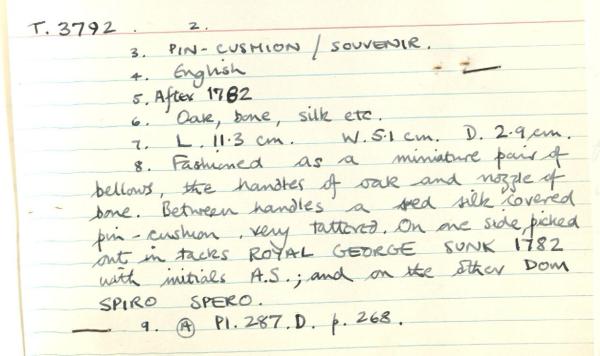 T. 3792. 2.
3. PIN-CUSHION / SOUVENIR.
4. English
5. After 1782
6. Oak, bone, silk etc.
7. L. 11.3 cm. W. 5.1 cm. D. 2.9 cm.
8. Fashioned as a miniature pair of
bellows, the handles of oak and nozzle of
bone. Between handles a red silk covered
pin-cushion, very tattered. On one side, picked
out in tacks ROYAL GEORGE SUNK 1782
with initials A.S.; and on the other DOM
SPIRO SPERO.
9. (A) Pl. 287. D. p. 268.